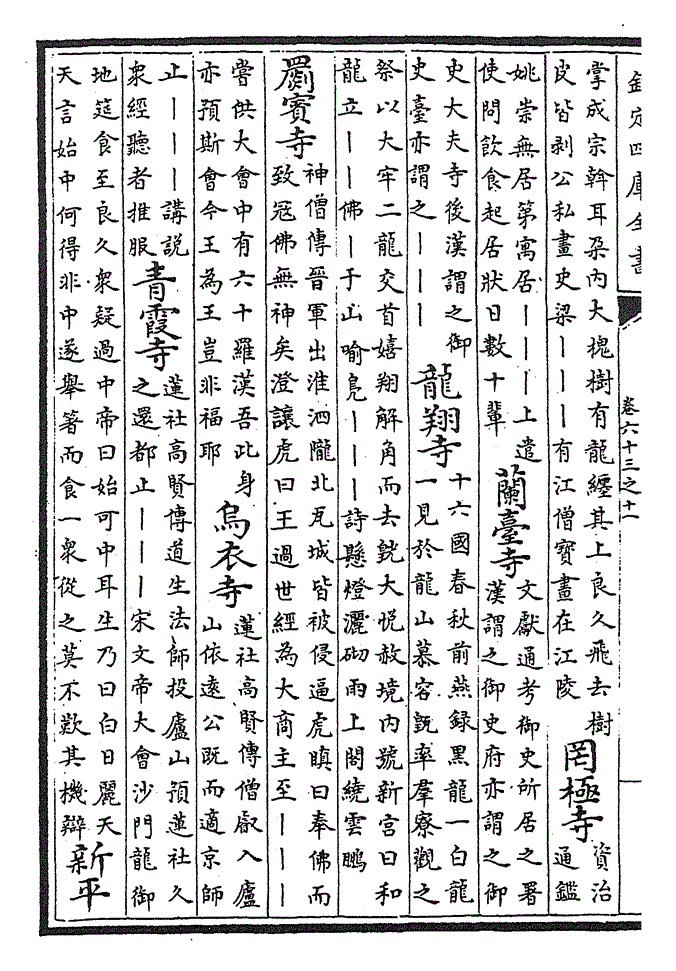 欽定四庫全書
卷六十三之十一
掌成宗斡耳朶内大槐樹有龍纏其上良久飛去樹
皮皆剥公私畫史梁｜｜｜有江僧寳畫在江陵
罔極寺
資治
通鑑
姚崇無居第寓居｜｜｜上遣
使問飲食起居狀日數十輩
蘭臺寺
文獻通考御史所居之署
漢謂之御史府亦謂之御
史大夫寺後漢謂之御
史臺亦謂之｜｜｜
龍翔寺
十六國春秋前燕録黒龍一白龍
一見於龍山慕容皝率羣寮觀之
祭以大牢二龍交首嬉翔解角而去皝大悦赦境内號新宫曰和
龍立｜｜佛｜于山喻鳬｜｜｜詩懸燈灑砌雨上閣繞雲鵬
罽賓寺
神僧傳晉軍出淮泗隴北瓦城皆被侵逼虎瞋曰奉佛而
致冦佛無神矣澄讓虎曰王過世經為大商主至｜｜｜
嘗供大會中有六十羅漢吾此身
亦預斯會今王為王豈非福耶
烏衣寺
蓮社高賢傳僧叡入廬
山依遠公既而適京師
止｜｜｜講説
衆經聽者推服
青霞寺
蓮社高賢傳道生法師投廬山預蓮社久
之還都止｜｜｜宋文帝大會沙門龍御
地筵食至良久衆疑過中帝曰始可中耳生乃曰白日麗天
天言始中何得非中遂舉箸而食一衆從之莫不歎其機辯
新平